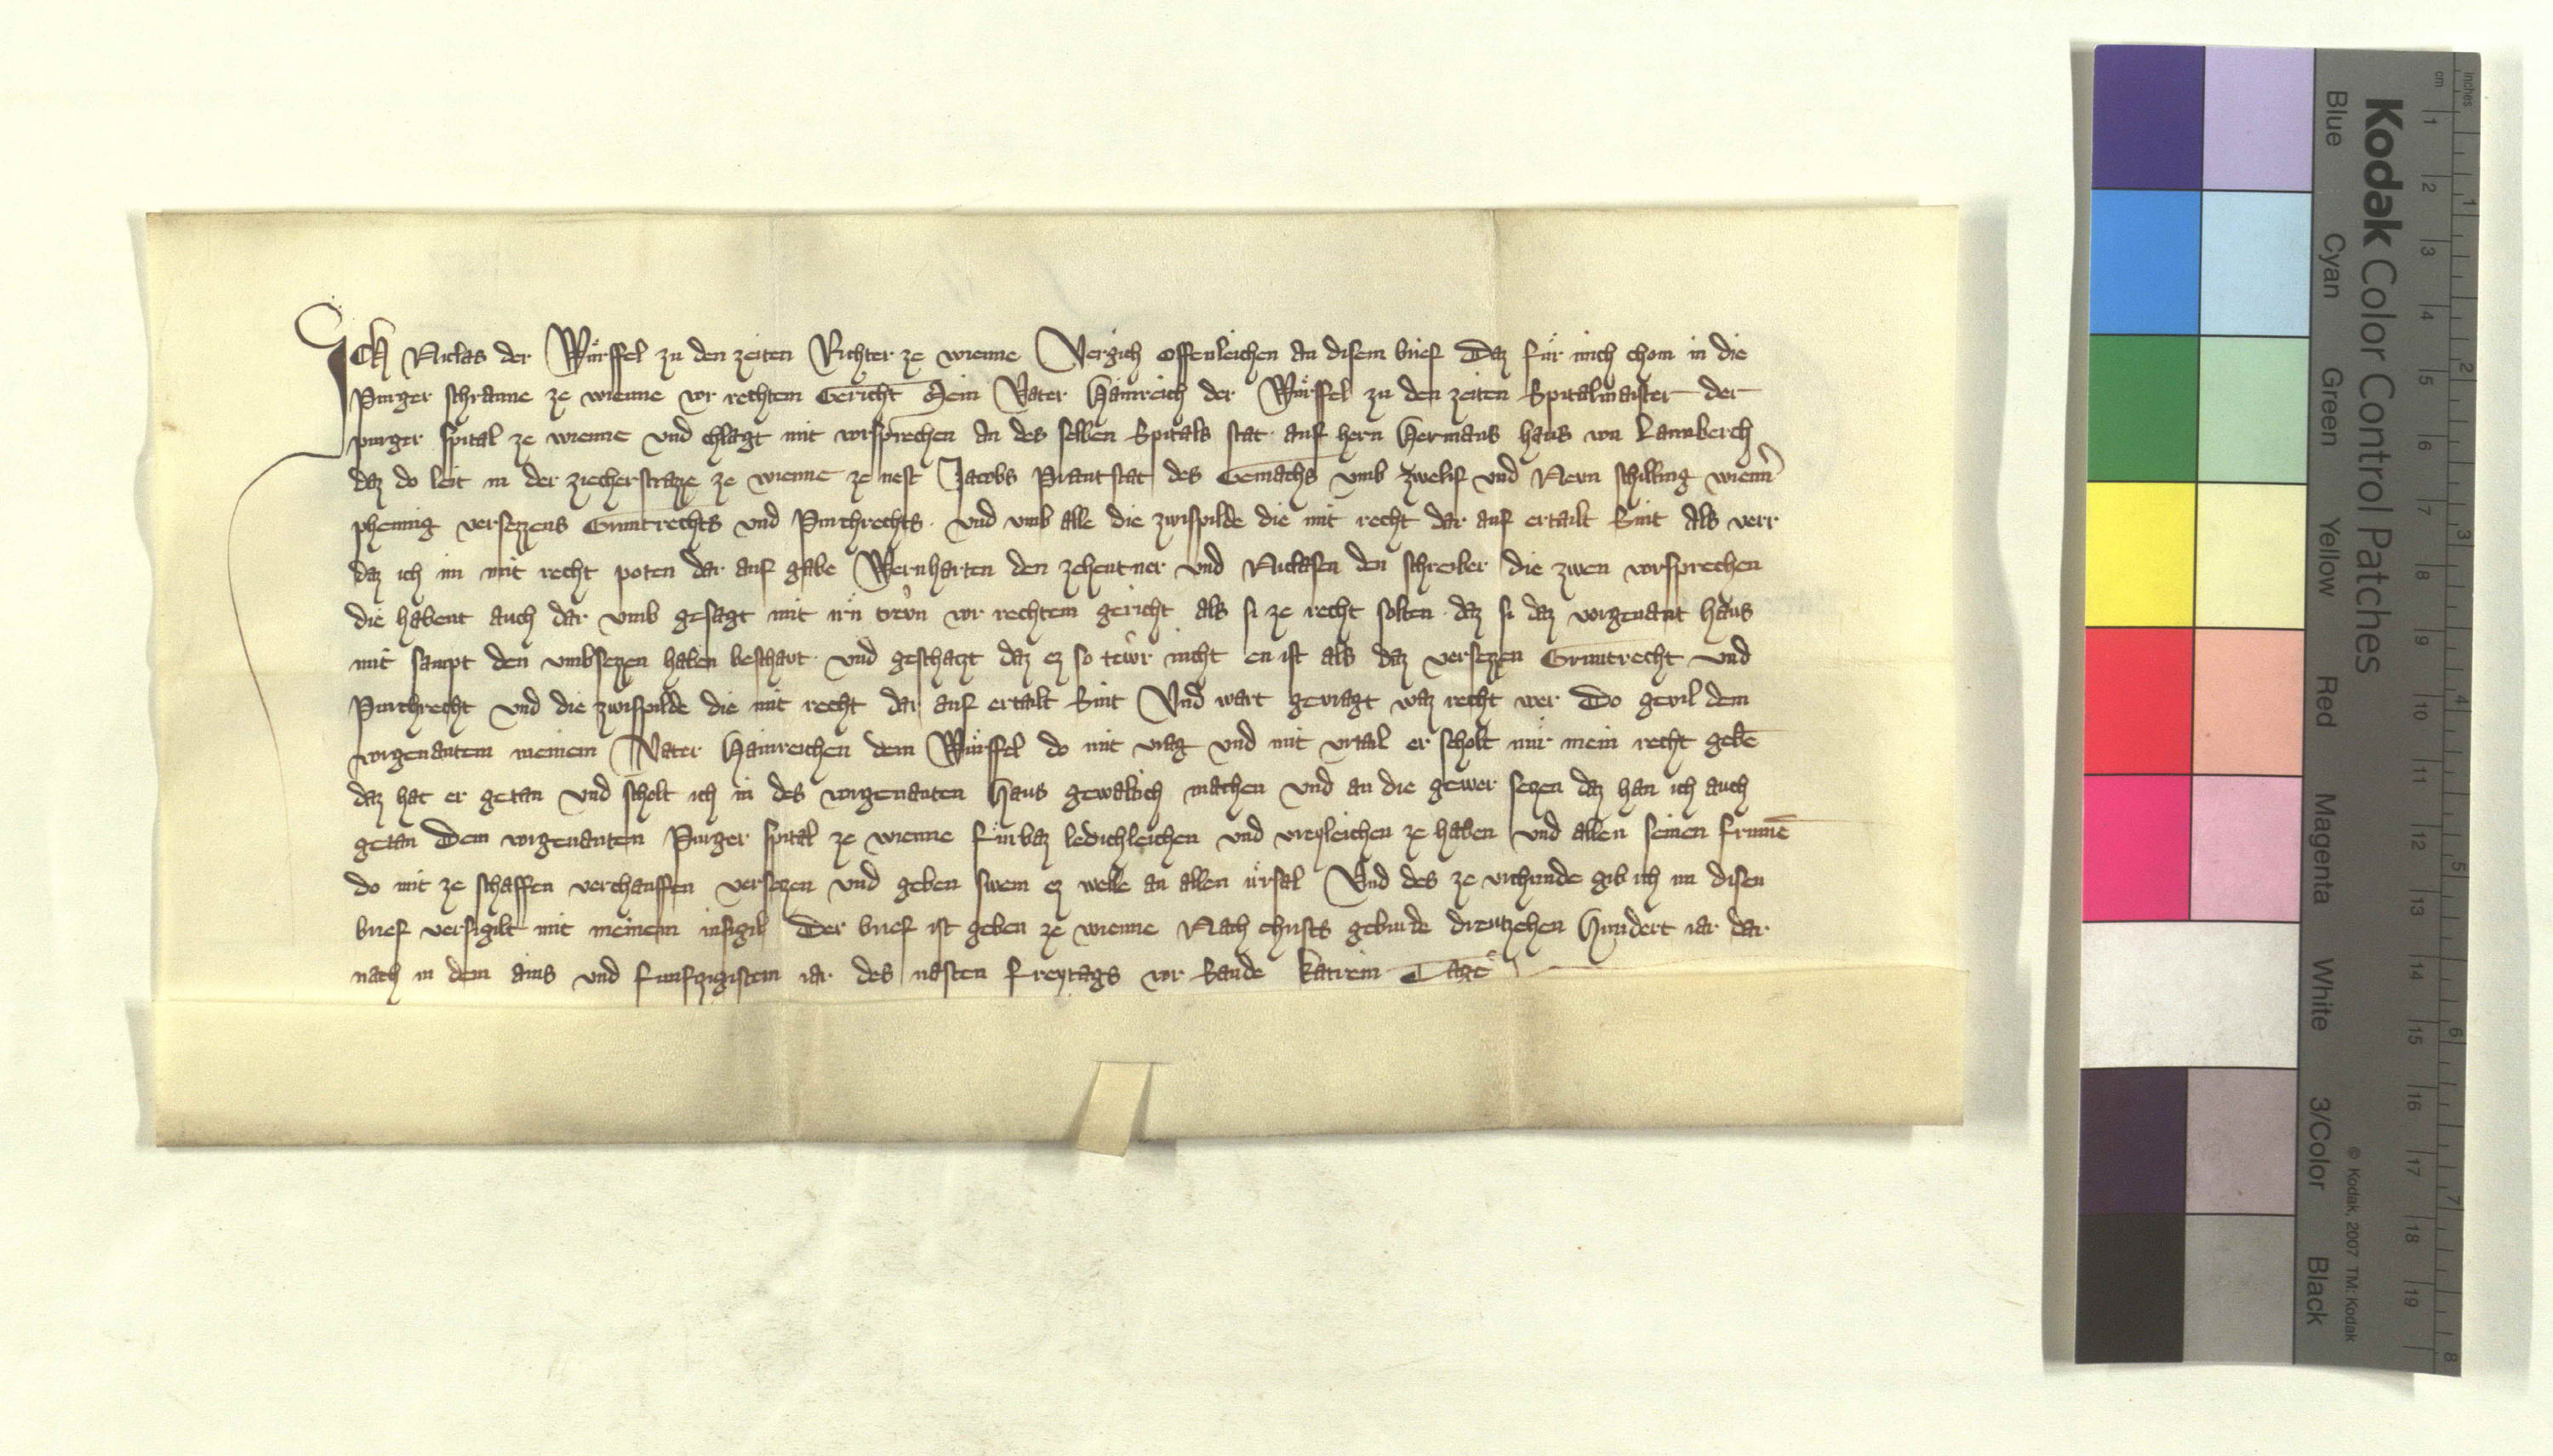 Ich Niclas der Würffel zu den zeiten Richter ze wienne Vergich offenleichen an disem brief Daz für mich chom in die
Purger schranne ze wienne vor rechtem Gericht Mein Vater Hainreich der Würffel zu den zeiten Spitalmaister der
purger spital ze wienne vnd chlagt mit vorsprechen an des selben Spitals stat auf hern Hermans haus von Lannberch
daz do leit in der ziecherstrazze ze wienne ze nest Jacobs Prantstat des Gemachs vmb zwelif vnd Nevn schilling wienn̄
phennig versezzens Gruntrechts vnd Purchrechts vnd vmb alle die zwispilde die mit recht dar auf ertailt Sint als verr
daz ich im mit recht poten dar auf gabe Wernharten den zehentner vnd Niclasen den schreiber die zwen vorsprechen
die habent auch dar vmb gesagt mit irn trevn vor rechtem gericht als si ze recht solten daz si daz vorgenant haus
mit sampt den vmbsezzen haben beschavt vnd geschatzt daz ez so tewr nicht en ist als daz versezzen Gruntrecht vnd
Purchrecht vnd die zwispilde die mit recht dar auf ertailt Sint Vnd wart gevragt waz recht wer Do gevil dem
vorgenantem meinem Vater Hainreichen dem Würffel do mit vrag vnd mit vrtail er scholt mir mein recht gebē
daz hat er getan vnd scholt ich in des vorgenanten Haus gewaltich machen vnd an die gewer sezen daz han ich auch
getan Dem vorgenanten Purger spital ze wienne fürbaz ledichleichen vnd vreyleichen ze haben vnd allen seinen frumē
do mit ze schaffen verchauffen versezen vnd geben swem ez welle an allen irrsal Vnd des ze vrchunde gib ich im disen
brief versigilt mit meinem insigil Der brief ist geben ze wienne Nach christs geburde dreutzehen Hundert iar dar
nach in dem ains vnd funfzigistem iar des nasten freytags vor Sande Katrein Tage
Kodak Color Control Patches
Blue Cyan Green Yellow Red Magenta White 3/Color Black
© Kodak, 2007 TM: Kodak
inches 1 2 3 4 5 6 7 8
cm 1 2 3 4 5 6 7 8 9 10 11 12 13 14 15 16 17 18 19